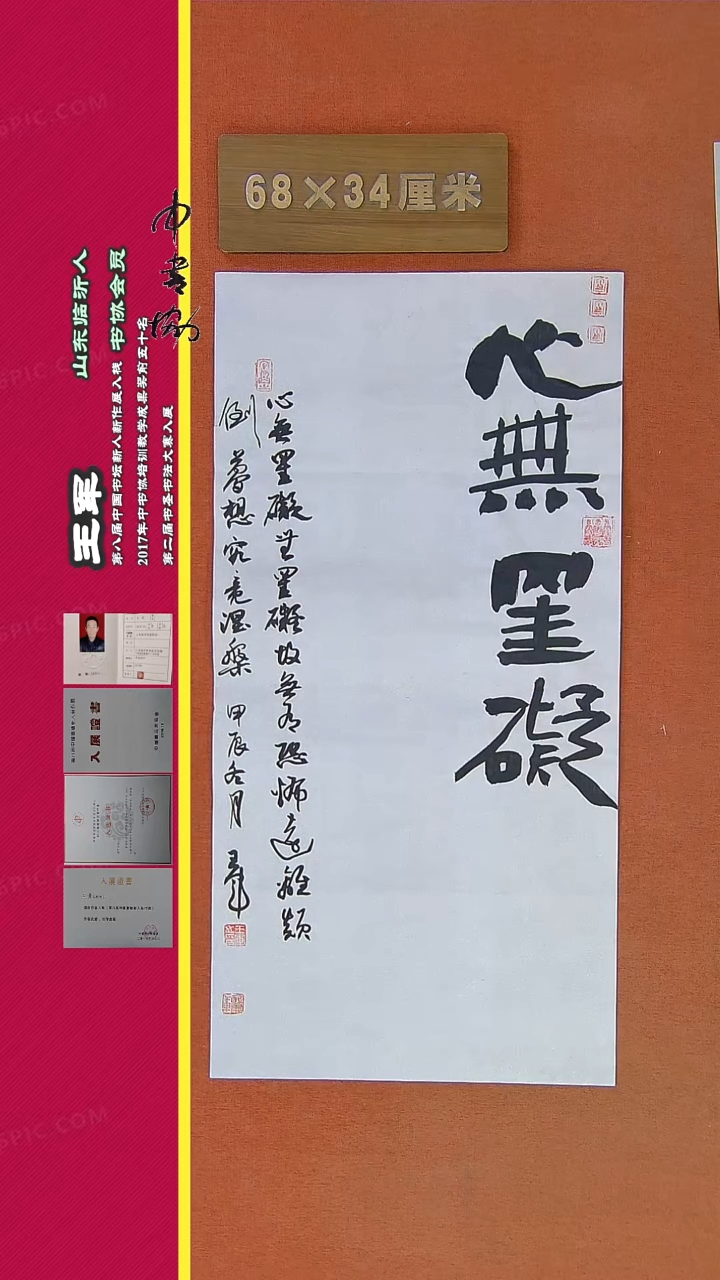 68×34厘米
心無罣礙
心無罣礙無罣礙故無有恐怖遠離顛
倒夢想究竟涅槃 甲辰冬月 王軍
中书协
山东临沂人 书协会员
王军
第八届中国书坛新人新作展入栈
2017年中书协培训教学成果奖前五十名
第二届书圣书法大赛入展
入展證書
入展证书